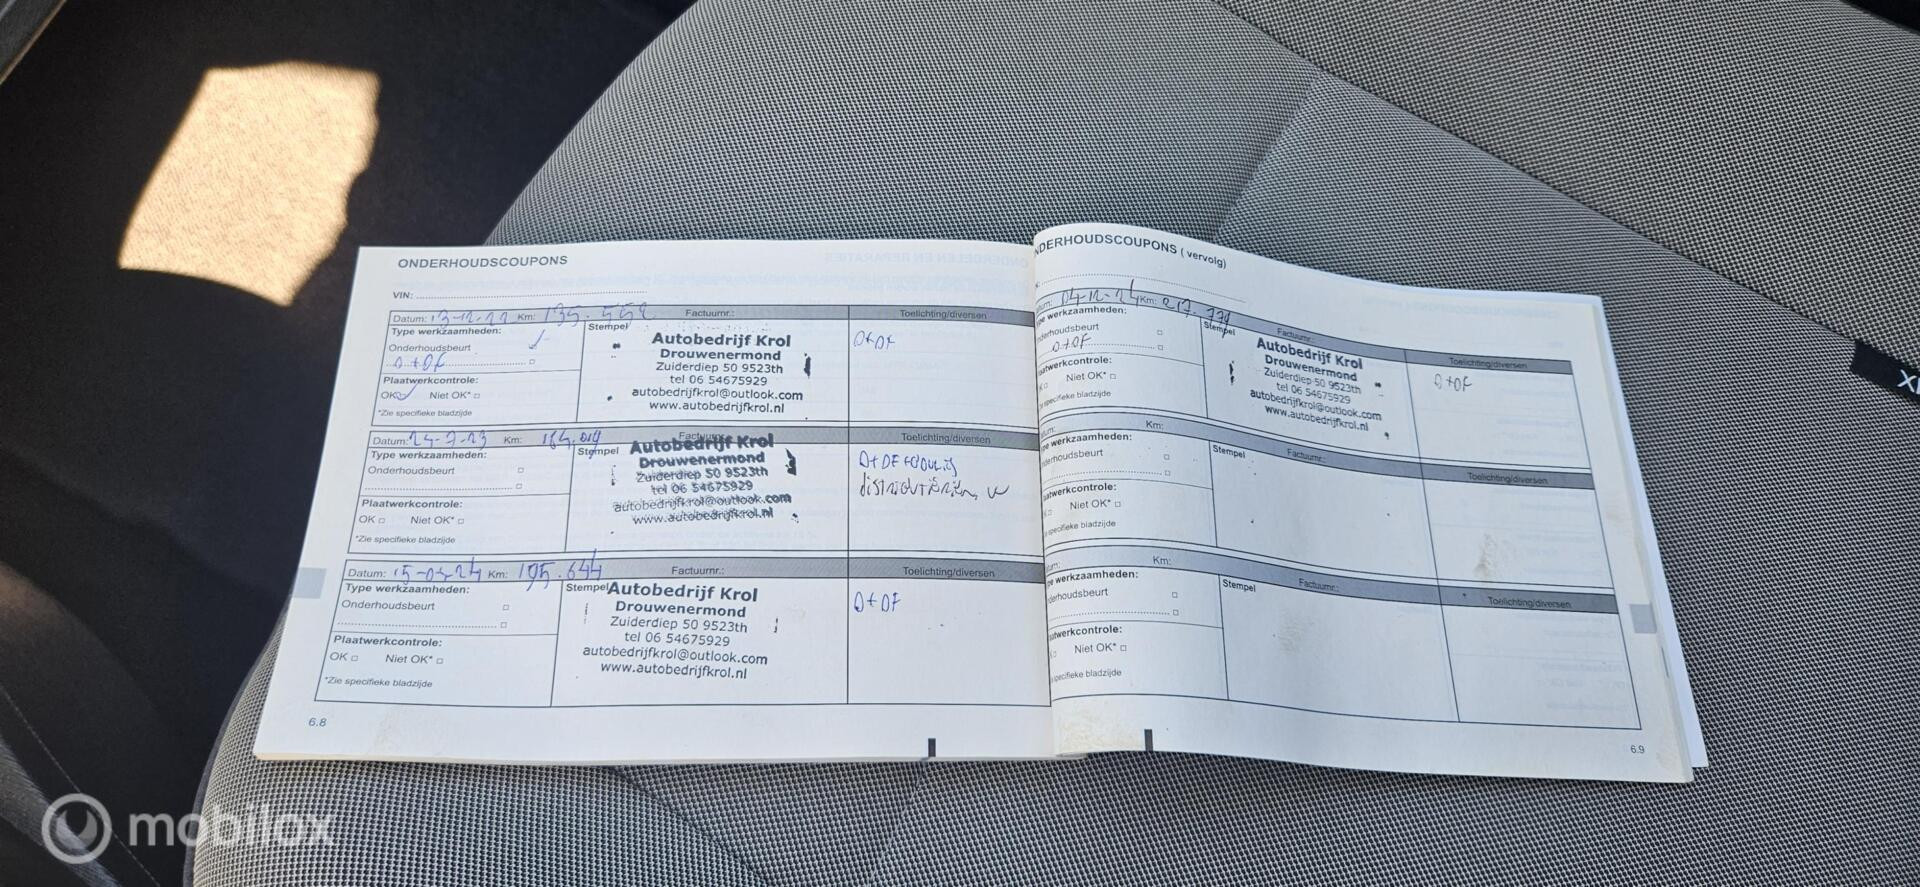 ONDERHOUDSCOUPONS
VIN:
Datum: 13-12-22 Km: 135.552 Factuurnr.: Toelichting/diversen
Type werkzaamheden:
Onderhoudsbeurt
O+OF
Plaatwerkcontrole:
OK Niet OK*
*Zie specifieke bladzijde
Stempel
Autobedrijf Krol
Drouwenermond
Zuiderdiep 50 9523th
tel 06 54675929
autobedrijfkrol@outlook.com
www.autobedrijfkrol.nl
O+OF
Datum: Km: Factuurnr.: Toelichting/diversen
Type werkzaamheden:
Onderhoudsbeurt
Plaatwerkcontrole:
OK Niet OK*
*Zie specifieke bladzijde
Stempel
Autobedrijf Krol
Drouwenermond
Zuiderdiep 50 9523th
tel 06 54675929
autobedrijfkrol@outlook.com
www.autobedrijfkrol.nl
Datum: 15-04-24 Km: 195.644 Factuurnr.: Toelichting/diversen
Type werkzaamheden:
Onderhoudsbeurt
Plaatwerkcontrole:
OK Niet OK*
*Zie specifieke bladzijde
Stempel
Autobedrijf Krol
Drouwenermond
Zuiderdiep 50 9523th
tel 06 54675929
autobedrijfkrol@outlook.com
www.autobedrijfkrol.nl
O+OF
6.8
NDERHOUDSCOUPONS ( vervolg)
04-12-24 Km: 217.774 Factuurnr.: Toelichting/diversen
ype werkzaamheden:
nderhoudsbeurt
O+OF
aatwerkcontrole:
Niet OK*
specifieke bladzijde
Stempel
Autobedrijf Krol
Drouwenermond
Zuiderdiep 50 9523th
tel 06 54675929
autobedrijfkrol@outlook.com
www.autobedrijfkrol.nl
O+OF
Km: Factuurnr.: Toelichting/diversen
ype werkzaamheden:
nderhoudsbeurt
aatwerkcontrole:
Niet OK*
specifieke bladzijde
Stempel
Km: Factuurnr.: Toelichting/diversen
ype werkzaamheden:
nderhoudsbeurt
aatwerkcontrole:
Niet OK*
specifieke bladzijde
Stempel
6.9
mobilox